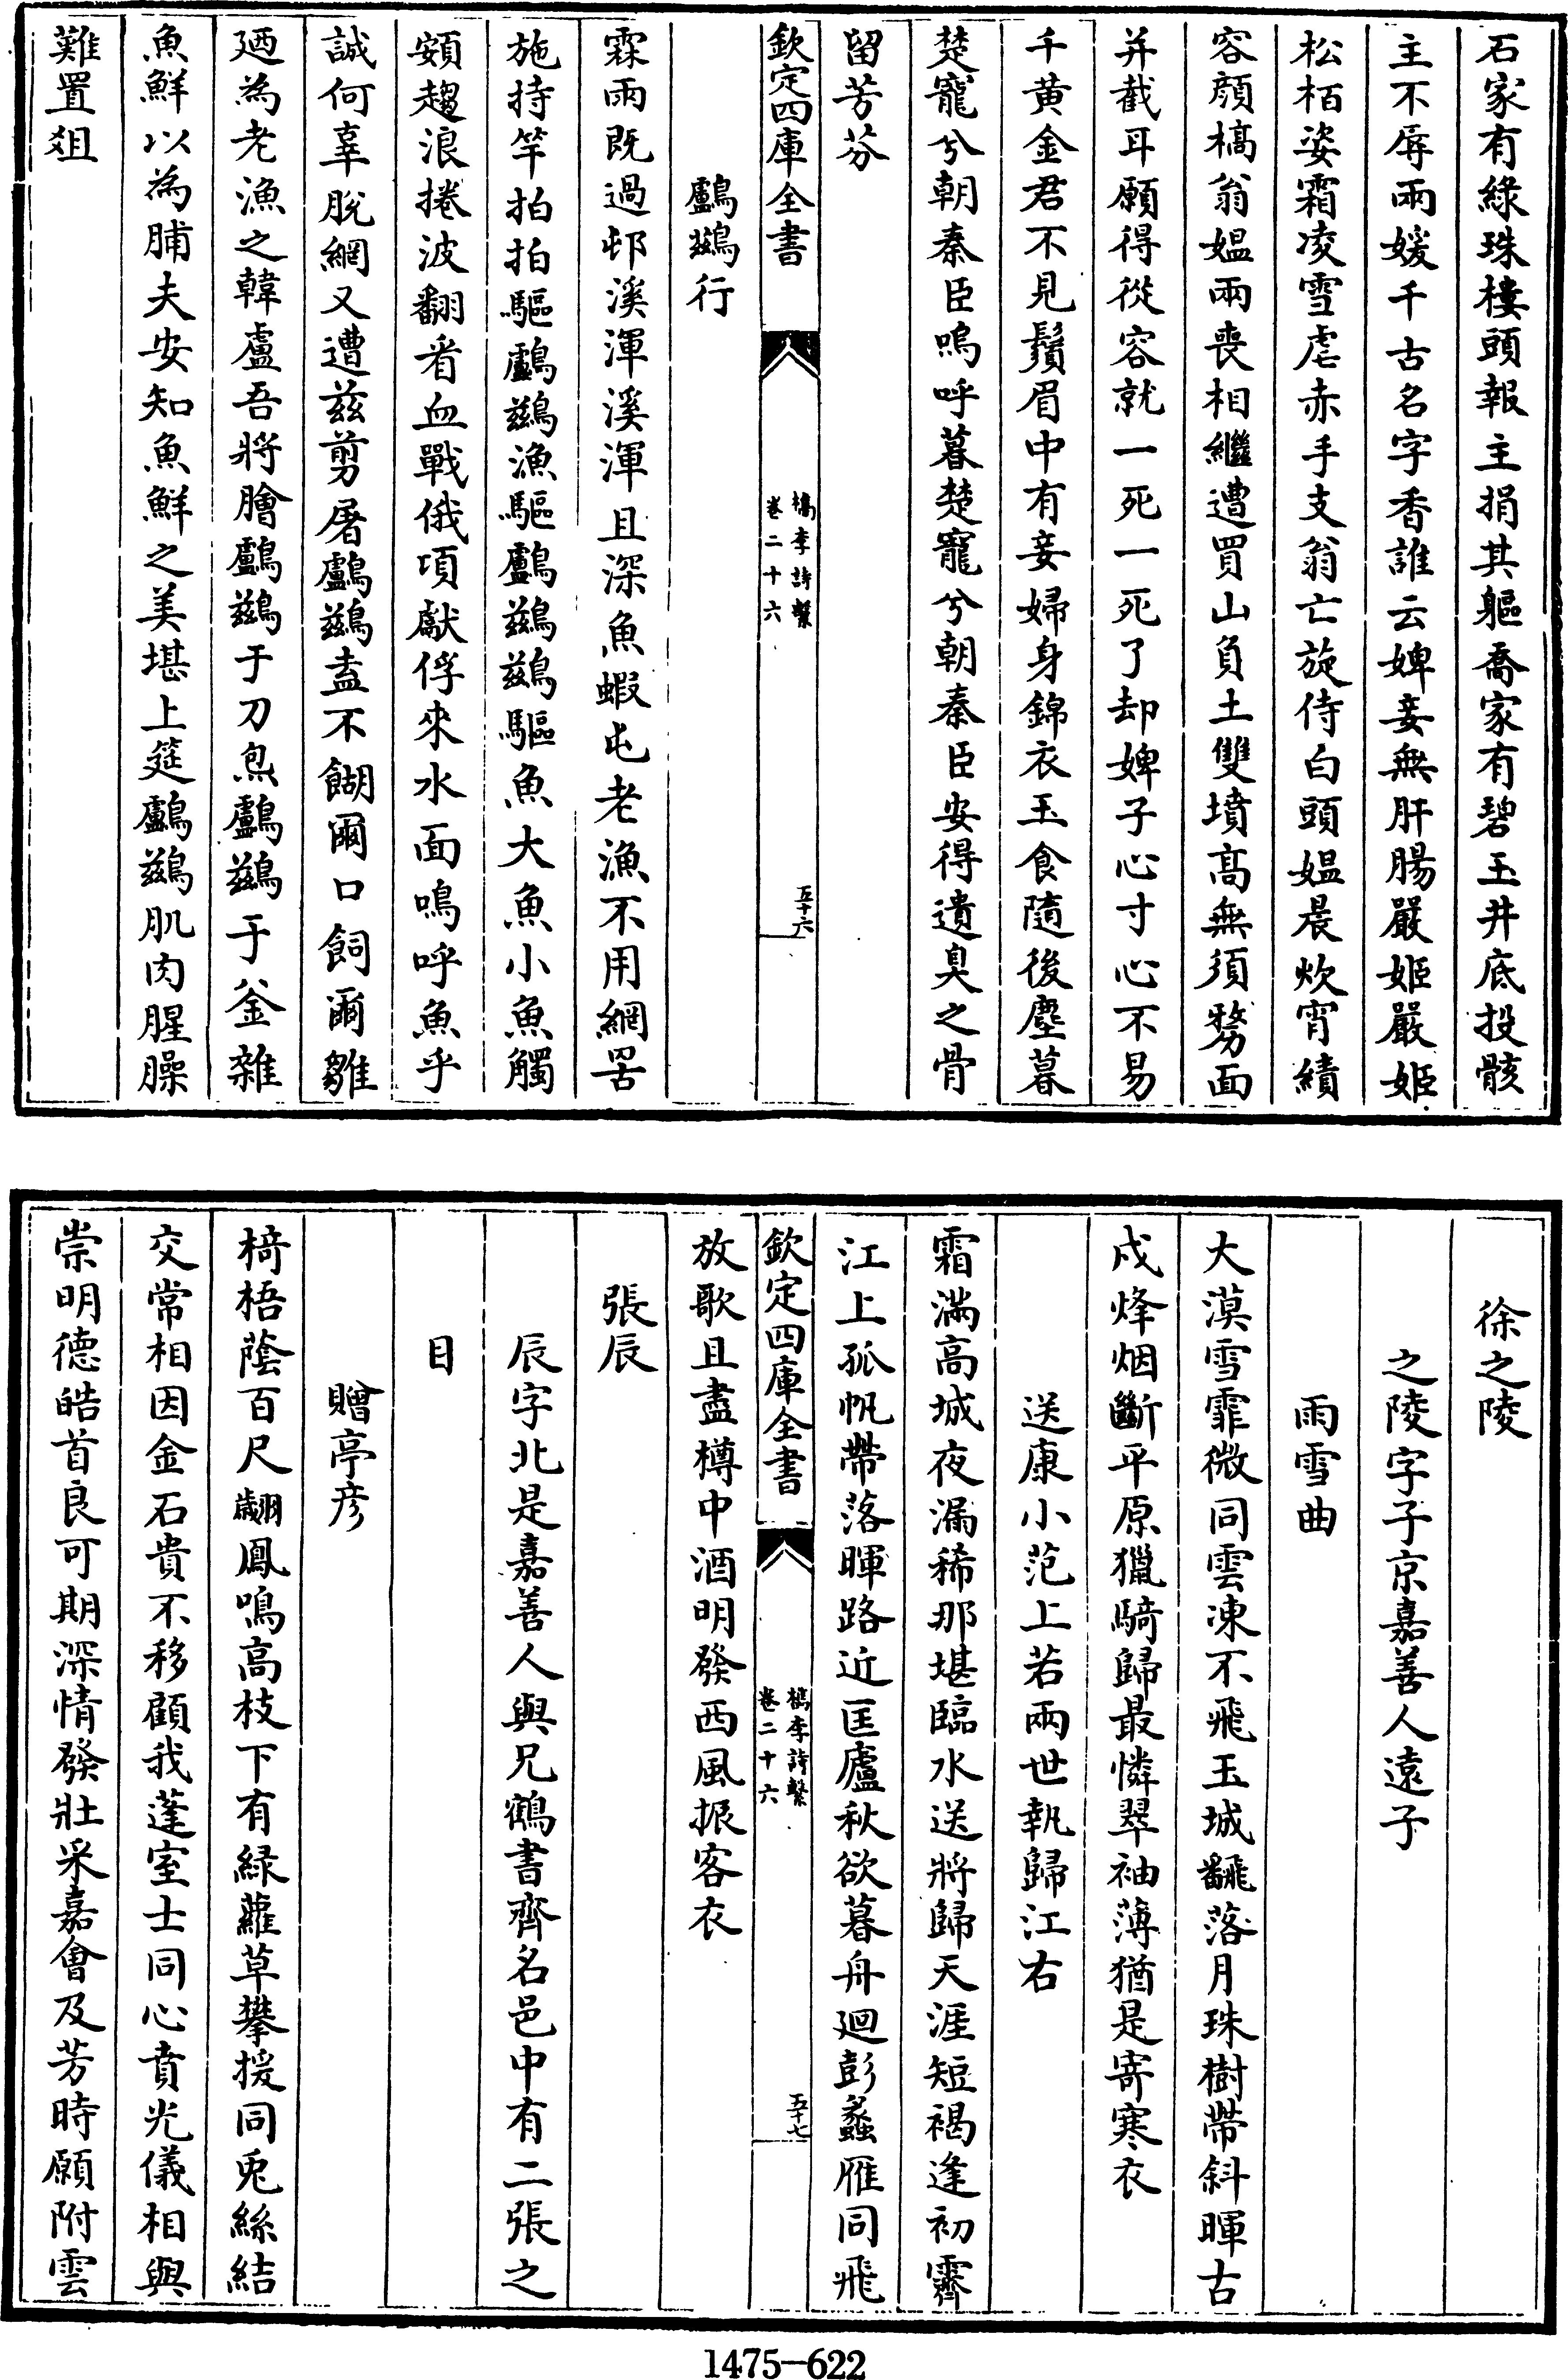 石家有綠珠樓頭報主捐其軀喬家有碧玉井底投骸
主不辱兩媛千古名字香誰云婢妾無肝腸嚴姬嚴姬
松栢姿霜凌雪虐赤手支翁亡旋侍白頭媼晨炊宵績
容顔槁翁媼兩喪相繼遭買山負土雙墳髙無須剺面
并截耳願得從容就一死一死了却婢子心寸心不易
千黄金君不見鬚眉中有妾婦身錦衣玉食隨後塵暮
楚寵兮朝秦臣嗚呼暮楚寵兮朝秦臣安得遺臭之骨
留芳芬
欽定四庫全書
檇李詩繫
卷二十六
五十六
鸕鷀行
霖雨既過邨溪渾溪渾且深魚蝦屯老漁不用網罟
施持竿拍拍驅鸕鷀漁驅鸕鷀鷀驅魚大魚小魚觸
頞趨浪捲波翻看血戰俄頃獻俘來水面嗚呼魚乎
誠何辜脫網又遭兹剪屠鸕鷀盍不餬爾口飼爾雛
廼為老漁之韓盧吾將膾鸕鷀于刀炰鸕鷀于釡雜
魚鮮以為脯夫安知魚鮮之美堪上筵鸕鷀肌肉腥臊
難置俎
徐之陵
之陵字子京嘉善人遠子
雨雪曲
大漠雪霏微同雲凍不飛玉城飜落月珠樹帶斜暉古
戍烽烟斷平原獵騎歸最憐翠袖薄猶是寄寒衣
送康小范上若兩世執歸江右
霜滿高城夜漏稀那堪臨水送將歸天涯短褐逢初霽
江上孤帆帶落暉路近匡廬秋欲暮舟廻彭蠡雁同飛
欽定四庫全書
檇李詩繫
卷二十六
五十七
放歌且盡樽中酒明發西風振客衣
張辰
辰字北是嘉善人與兄鶴書齊名邑中有二張之
目
贈亭彥
椅梧蔭百尺翽鳳鳴高枝下有緑蘿草攀援同兎絲結
交常相因金石貴不移顧我蓬室士同心賁光儀相與
崇明德皓首良可期深情發壯采嘉會及芳時願附雲
1475-622